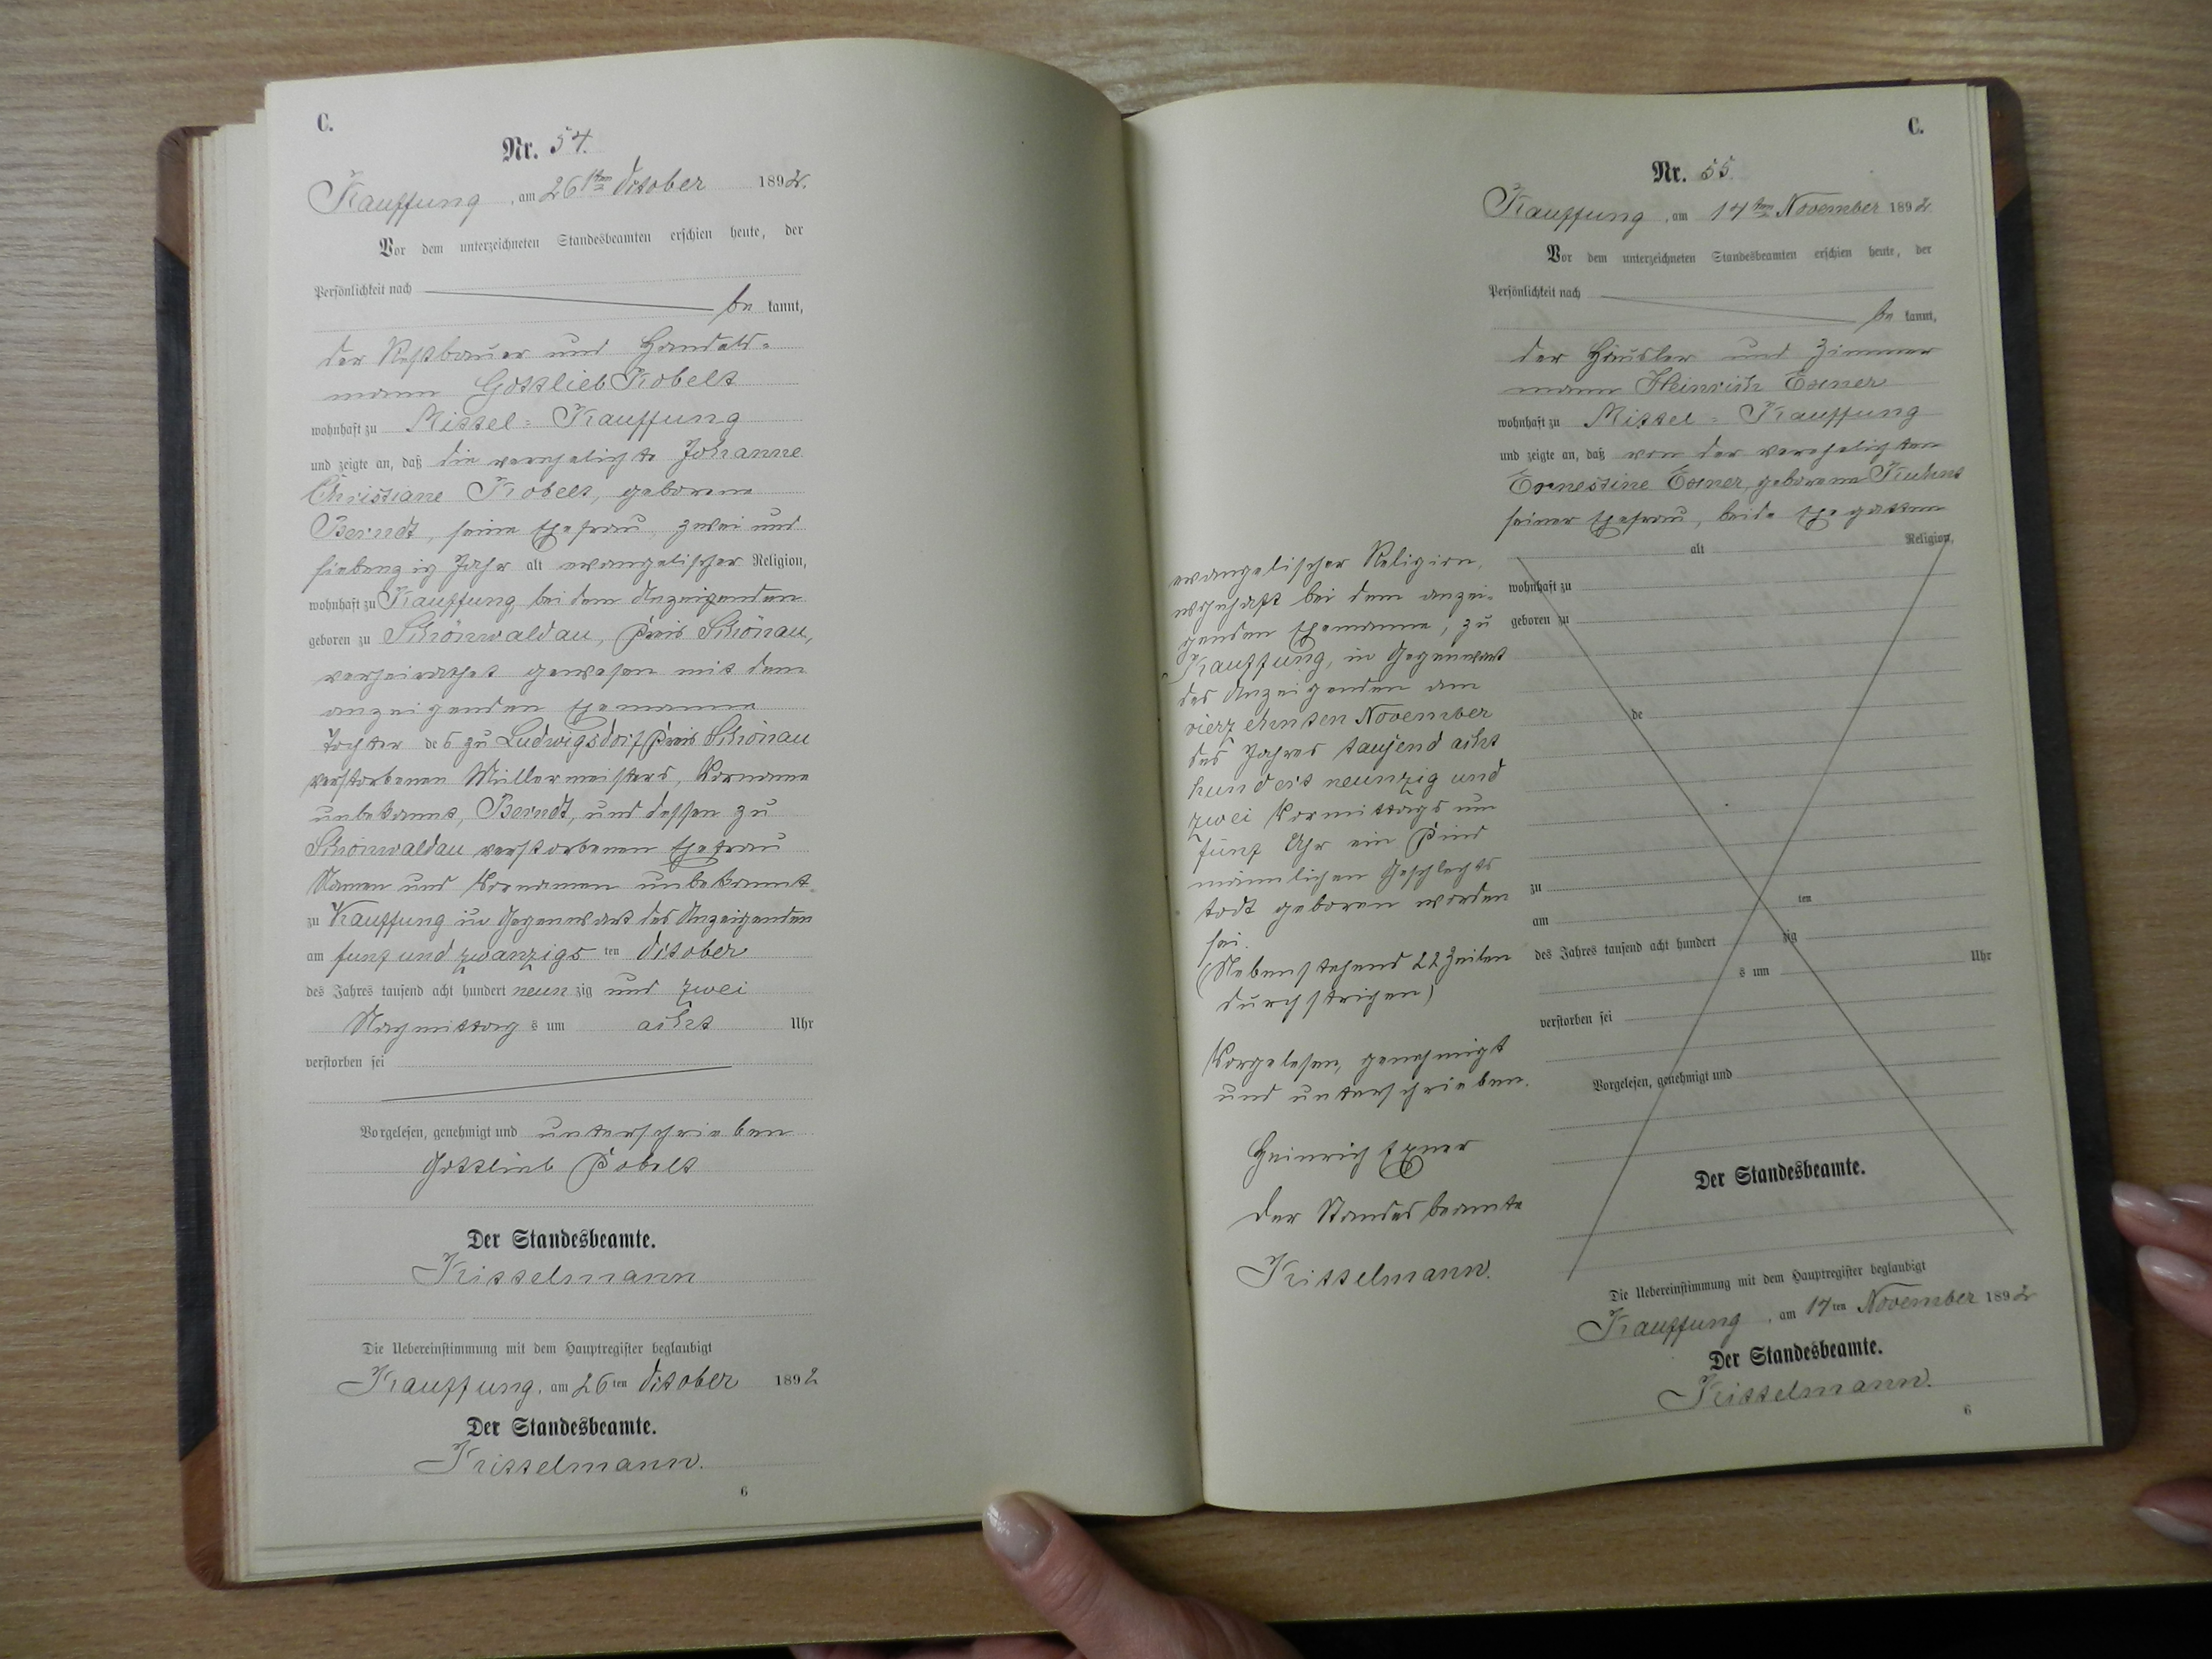 C.
Nr. 54.
Kauffung, am 26ten October 1892.
Vor dem unterzeichneten Standesbeamten erschien heute, der
Persönlichkeit nach
be kannt,
der Restbauer und Handels-
mann Gottlieb Kobelt
wohnhaft zu Mittel-Kauffung
und zeigte an, daß die verehelichte Johanne
Christiane Kobelt, geborene
Berndt, seine Ehefrau, zwei und
siebenzig Jahr alt evangelischer Religion,
wohnhaft zu Kauffung bei dem Anzeigenden
geboren zu Schönwaldau, Kreis Schönau,
verheirathet gewesen mit dem
anzeigenden Ehemanne
Tochter des zu Ludwigsdorf Kreis Schönau
verstorbenen Müllermeisters, Vorname
unbekannt, Berndt, und dessen zu
Schönwaldau verstorbenen Ehefrau
Namen und Vornamen unbekannt
zu Kauffung in Gegenwart des Anzeigenden
am fünf und zwanzigs ten October
des Jahres tausend acht hundert neun zig und zwei
Nachmittag s um acht Uhr
verstorben sei
Vorgelesen, genehmigt und unterschrieben
Gottlieb Kobelt
Der Standesbeamte.
Kittelmann
Die Uebereinstimmung mit dem Hauptregister beglaubigt
Kauffung, am 26ten October 1892
Der Standesbeamte.
Kittelmann.
6
C.
Nr. 55.
Kauffung, am 14ten November 1892
Vor dem unterzeichneten Standesbeamten erschien heute, der
Persönlichkeit nach
be kannt,
der Häusler und Zimmer
mann Heinrich Exner
wohnhaft zu Mittel-Kauffung
und zeigte an, daß von der verehelichten
Ernestine Exner, geborene Kuhnt
seiner Ehefrau, beide Ehegatten
alt Religion,
wohnhaft zu
geboren zu
de
zu
am ten
des Jahres tausend acht hundert zig
s um Uhr
verstorben sei
Vorgelesen, genehmigt und
Der Standesbeamte.
evangelischer Religion,
wohnhaft bei dem anzei-
genden Ehemanne, zu
Kauffung, in Gegenwart
des Anzeigenden am
vierzehnten November
des Jahres tausend acht
hundert neunzig und
zwei Vormittags um
fünf Uhr ein Kind
männlichen Geschlechts
todt geboren worden
sei.
(Nebenstehend 22 Zeilen
durchstrichen)
Vorgelesen, genehmigt
und unterschrieben.
Heinrich Exner
Der Standesbeamte
Kittelmann.
Die Uebereinstimmung mit dem Hauptregister beglaubigt
Kauffung, am 14ten November 1892
Der Standesbeamte.
Kittelmann.
6